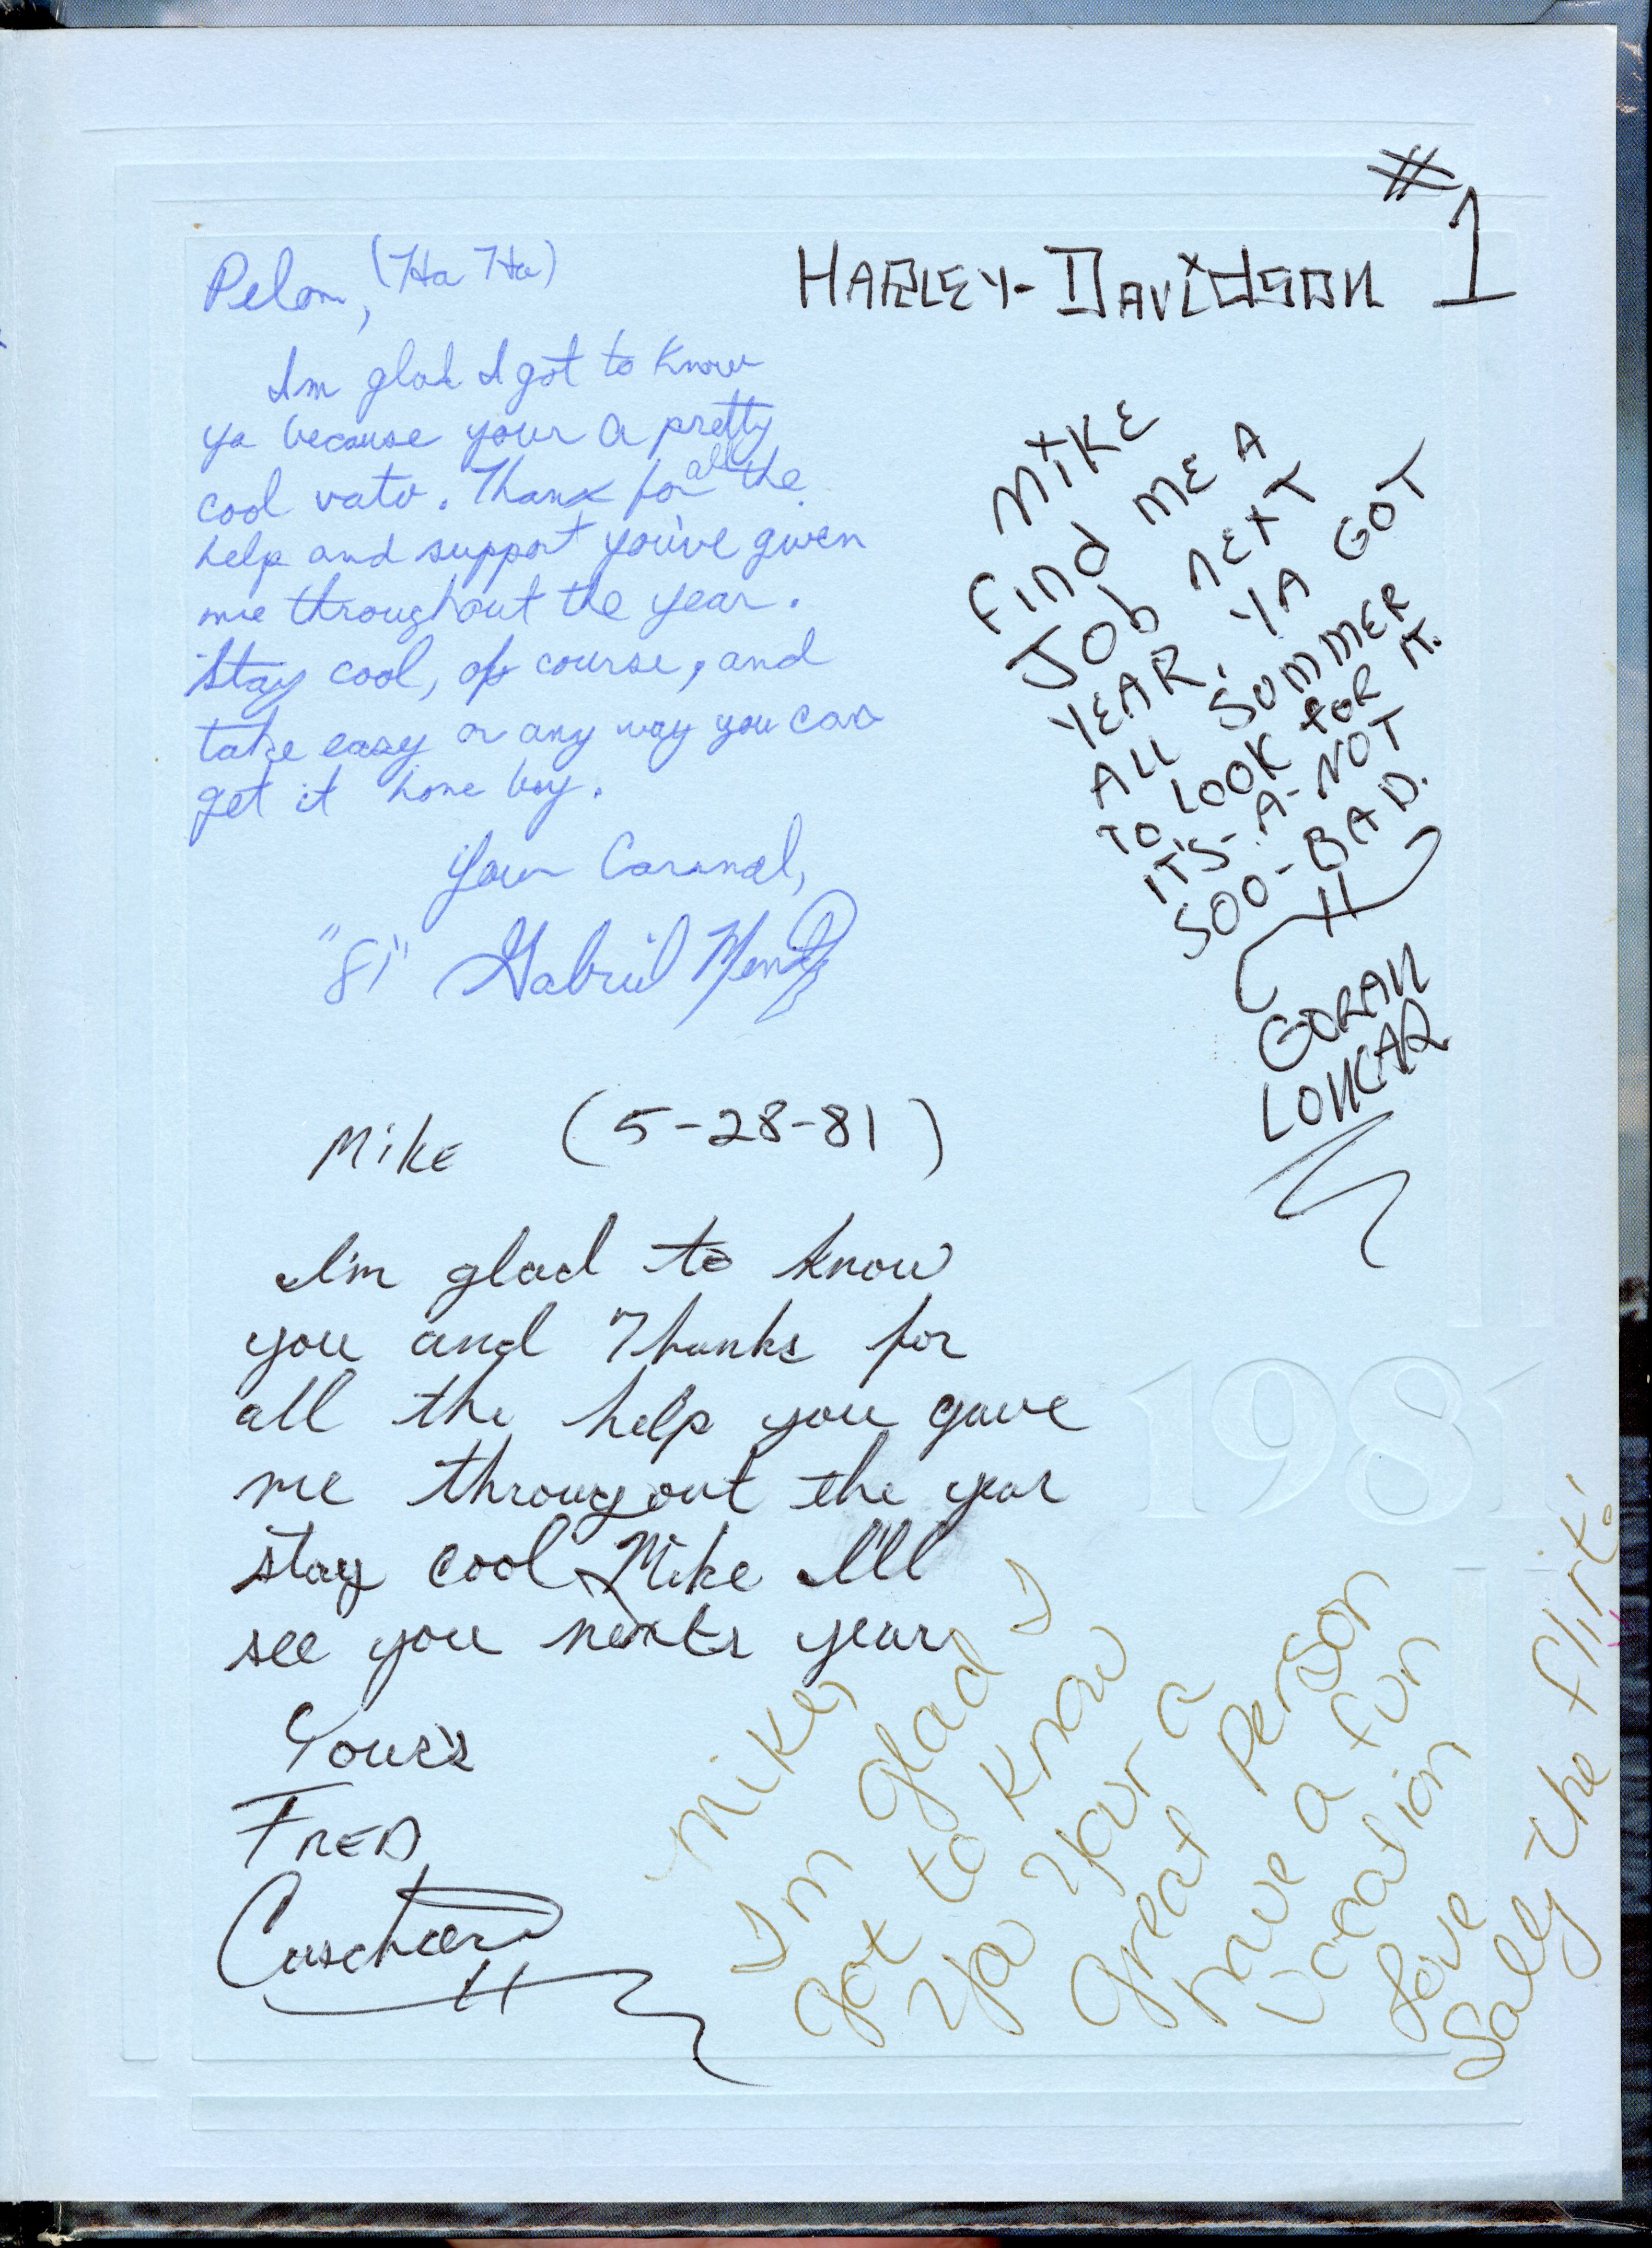 Pelon, (Ha Ha)
Im glad I got to know
ya because your a pretty
cool vato. Thanx for all the
help and support you've given
me throughout the year.
Stay cool, of course, and
take easy or any way you can
get it home boy.
Your Carnal,
"81" Gabriel
#1
HARLEY-DAVIDSON
MIKE
FIND ME A
JOB NEXT
YEAR. YA GOT
ALL SUMMER
TO LOOK FOR IT.
IT'S-A-NOT
SOO-BAD.
GORAN
LONCAR
Mike (5-28-81)
I'm glad to know
you and Thanks for
all the help you gave
me througout the year
stay cool Mike I'll
see you next year
Yours
FRED
1981
Mike,
I'm glad I
got to know
ya your a
great person
have a fun
vacation
Love
Sally the flirt!